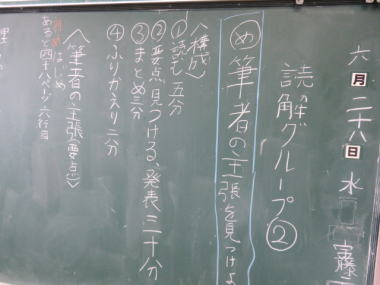 六月二十八日水
読解グループ②
め 筆者の主張を見つけよ
〈構成〉
①読む 五分
②要点見つける、発表 三十分
③まとめ 三分
④ふりかえり 二分
〈筆者の主張(要点)〉
はじめ
あると四十八ページ六行目